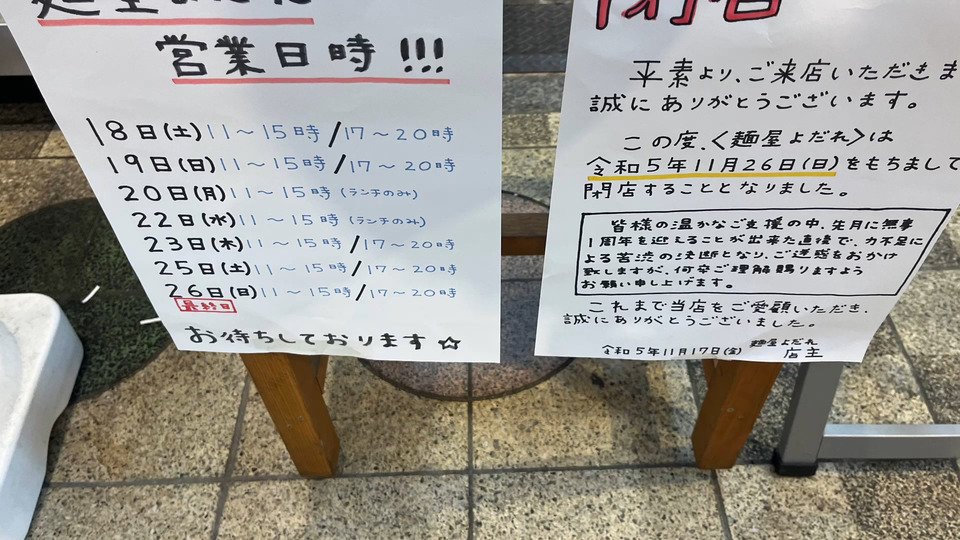 営業日時!!!
18日(土)11～15時/17～20時
19日(日)11～15時/17～20時
20日(月)11～15時(ランチのみ)
22日(水)11～15時(ランチのみ)
23日(木)11～15時/17～20時
25日(土)11～15時/17～20時
26日(日)11～15時/17～20時
最終日
お待ちしております☆
閉店
平素より、ご来店いただきま
誠にありがとうございます。
この度、〈麺屋よだれ〉は
令和5年11月26日(日)をもちまして
閉店することとなりました。
皆様の温かなご支援の中、先月に無事
1周年を迎えることが出来た直後で、力不足に
よる苦渋の決断となり、ご迷惑をおかけ
致しますが、何卒ご理解賜りますよう
お願い申し上げます。
これまで当店をご愛顧いただき、
誠にありがとうございました。
令和5年11月17日(金) 麺屋よだれ
店主